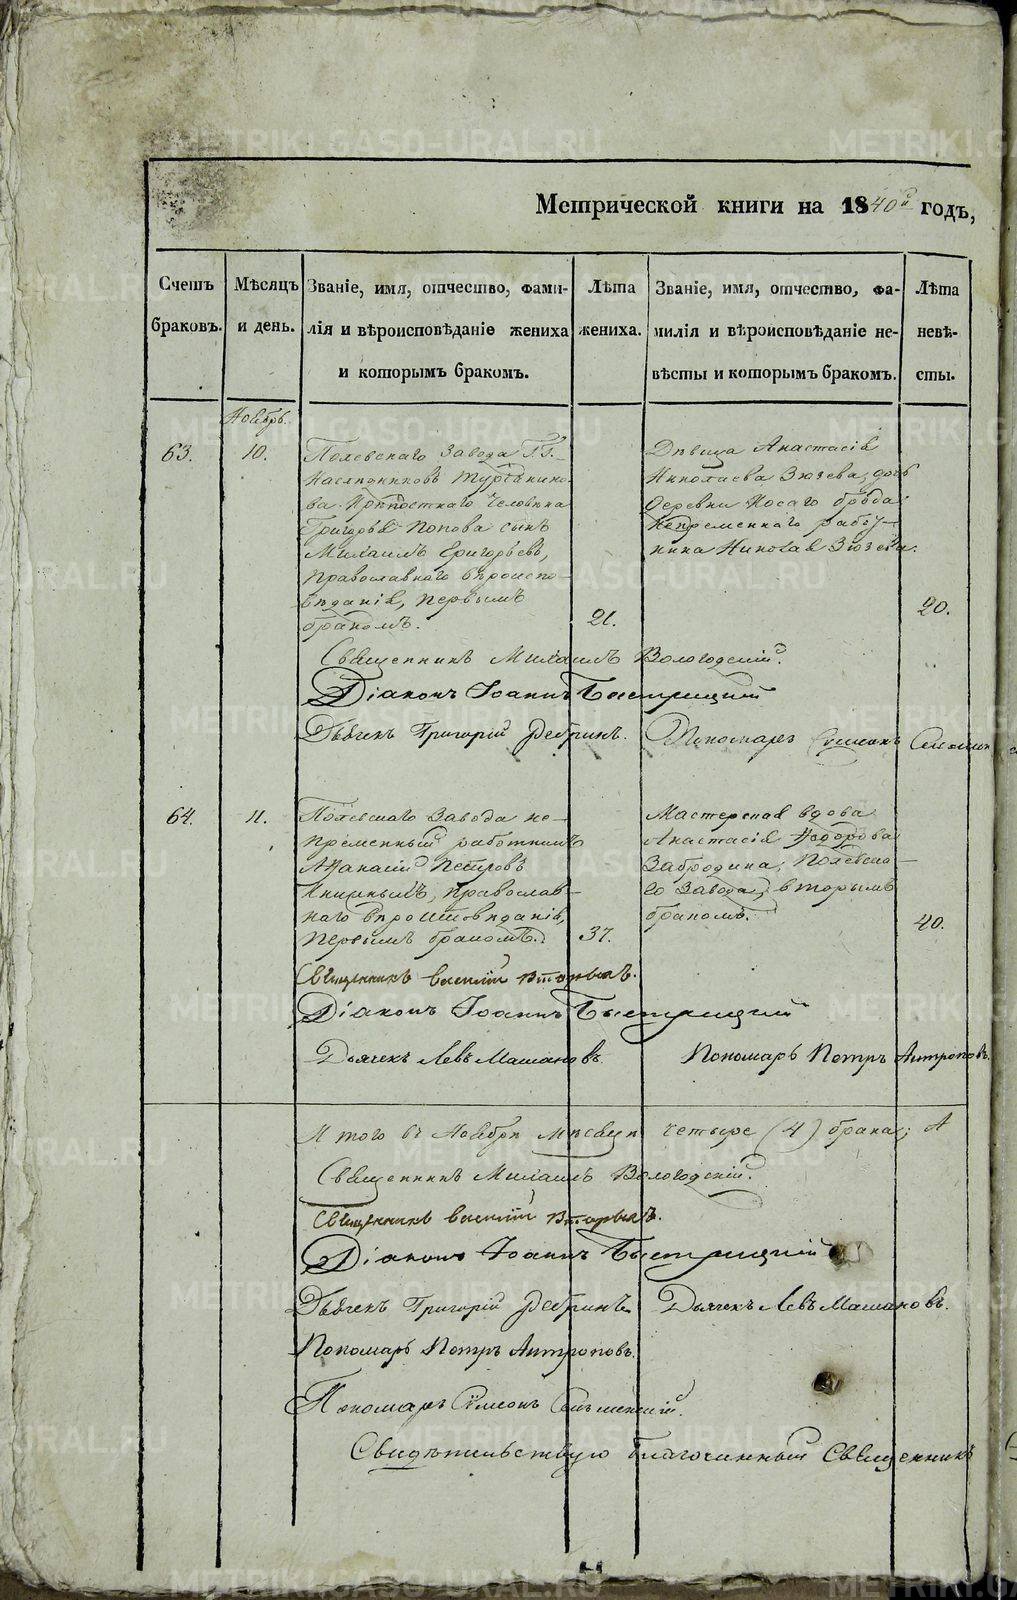 Метрической книги на 1840й годъ,
Счетъ браковъ.
Мѣсяцъ и день.
Званіе, имя, отчество, фами-
лія и вѣроисповѣданіе жениха
и которымъ бракомъ.
Лѣта
жениха.
Званіе, имя, отчество, фа-
милія и вѣроисповѣданіе не-
вѣсты и которымъ бракомъ.
Лѣта
невѣ-
сты.
Ноябрь.
63.
10.
Полевскаго Завода Г.Г.
Наслѣдниковъ Турчанино-
ва Крѣпостнаго человѣка
Григорья Попова сынъ
Михаилъ Григорьевъ,
Православнаго вѣроиспо-
вѣданія, первымъ
бракомъ.
21.
Дѣвица Анастасія
Николаева Зюзева, дочь
деревни Косаго брода
Непремѣннаго рабо-
ника Николая Зюзева.
20.
Священникъ Михаилъ Вологодскій.
Діаконъ Іоаннъ Быстрицкій
Дьячекъ Григорій Ребринъ.
Пономарь Сумеонъ
64.
11.
Полевскаго Завода не-
премѣнный работникъ
Афанасій Петровъ
православ-
наго вѣроисповѣданія,
первымъ бракомъ.
37.
Мастерская вдова
Анастасія Федорова
Забродина, Полевска-
го Завода, вторымъ
бракомъ.
40.
Священникъ Василій Вторыхъ.
Діаконъ Іоаннъ Быстрицкій
Дьячекъ Левъ Машановъ
Пономарь Петръ Антроповъ.
Итого въ Ноябрѣ мѣсяцѣ четыре (4) брака; А
Священникъ Михаилъ Вологодскій.
Священникъ Василій Вторыхъ.
Діаконъ Іоаннъ Быстрицкій
Дьячекъ Григорій Ребринъ
Дьячекъ Левъ Машановъ.
Пономарь Петръ Антроповъ.
Пономарь Сумеонъ
Свидѣтельствую Благочинный Священникъ
METRIKI.GASO-URAL.RU